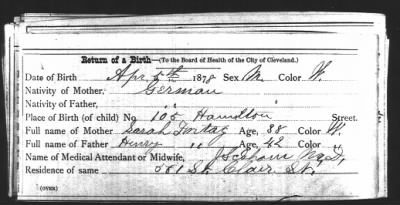 Return of a Birth—(To the Board of Health of the City of Cleveland.)
Date of Birth Apr 5th 1878 Sex M. Color W.
Nativity of Mother, German
Nativity of Father, " "
Place of Birth (of child) No. 105 Hamilton Street.
Full name of Mother Sarah Age, 38 Color W.
Full name of Father Henry " Age, 42 Color "
Name of Medical Attendant or Midwife, M.D.,
Residence of same 581 St. Clair St.
(OVER)